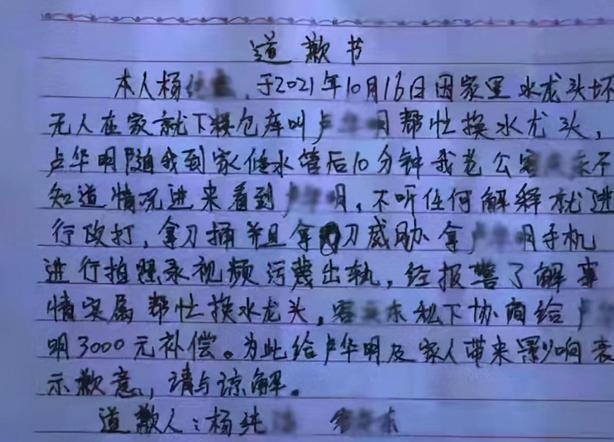 道歉书
本人杨 ,于2021年10月16日因家里水龙头坏
无人在家就下粮仓库叫卢 明帮忙换水龙头,
卢华明随我到家修水管后10分钟我老公 不
知道情况进来看到 明,不听任何解释就进
行攻打,拿刀捅并且拿刀威胁拿 明手机
进行拍照录视频污蔑出轨,经报警了解事
情实属帮忙换水龙头, 东私下协商给
明3000元补偿。为此给卢华明及家人带来影响表
示歉意,请与谅解。
道歉人:杨纯